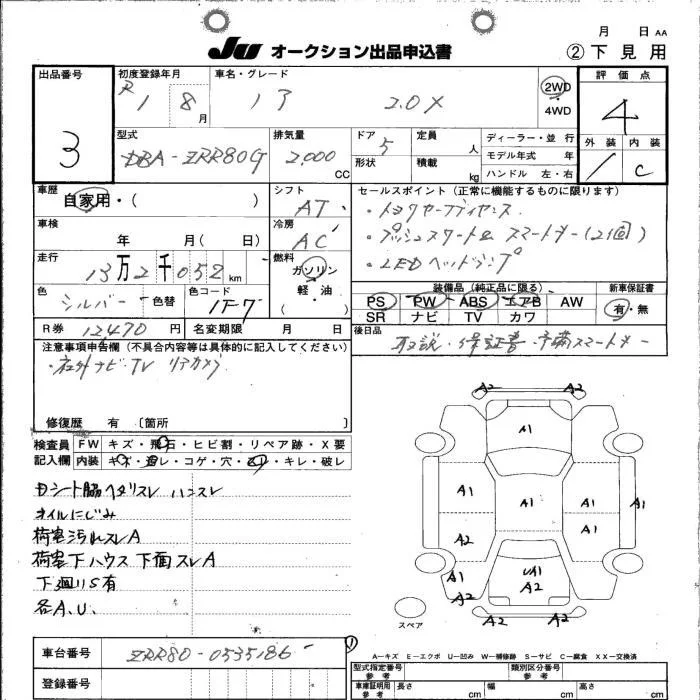 月 日 AA
JU オークション出品申込書 ② 下見用
出品番号 初度登録年月 車名・グレード 2WD 評価点
3 R 1 8 月 2.0X 4WD 4
型式 排気量 ドア 定員 ディーラー・並行 外装 内装
DBA-ZRR80G 2,000 CC 5 人 モデル年式 年 1 C
形状 積載 kg ハンドル 左・右
車歴 シフト セールスポイント(正常に機能するものに限ります)
自家用・( ) AT
・トヨタセーフティセンス
車検 冷房
年 月( 日) AC
・プッシュスタート& スマートキー(2個)
走行 燃料
13万2千052km ガソリン
・LEDヘッドランプ
軽・油
( )
装備品(純正品に限る) 新車保証書
色 シルバー 色替 色コード 1F7
PS PW ABS エアB AW 有・無
SR ナビ TV カワ
R券 12,470 円 名変期限 月 日
後日品 取説・保証書・予備スマートキー
注意事項申告欄(不具合内容等は具体的に記入してください)
・社外ナビ・TV リアカメラ
修復歴 有 〔箇所 〕
検査員 FW キズ・飛石・ヒビ割・リペア跡・X要
記入欄 内装 キズ・汚レ・コゲ・穴・キレ・破レ
Dシート脇ヘタリスレ ハンスレ
オイルにじみ
荷室汚れスレA
荷室下ハウス下面スレA
下廻りS有
各A.U.
A2 A2
A1
A1 A1 A1 A1
A2 A1
A1 UA1
A2 A2
A2 A2
スペア
A-キズ E-エクボ U-凹み W-補修跡 S-サビ C-腐食 XX-交換済
車台番号 ZRR80-0535186
登録番号
型式指定番号 参考 類別区分番号 参考
車庫証明用 参考 長さ cm 幅 cm 高さ cm